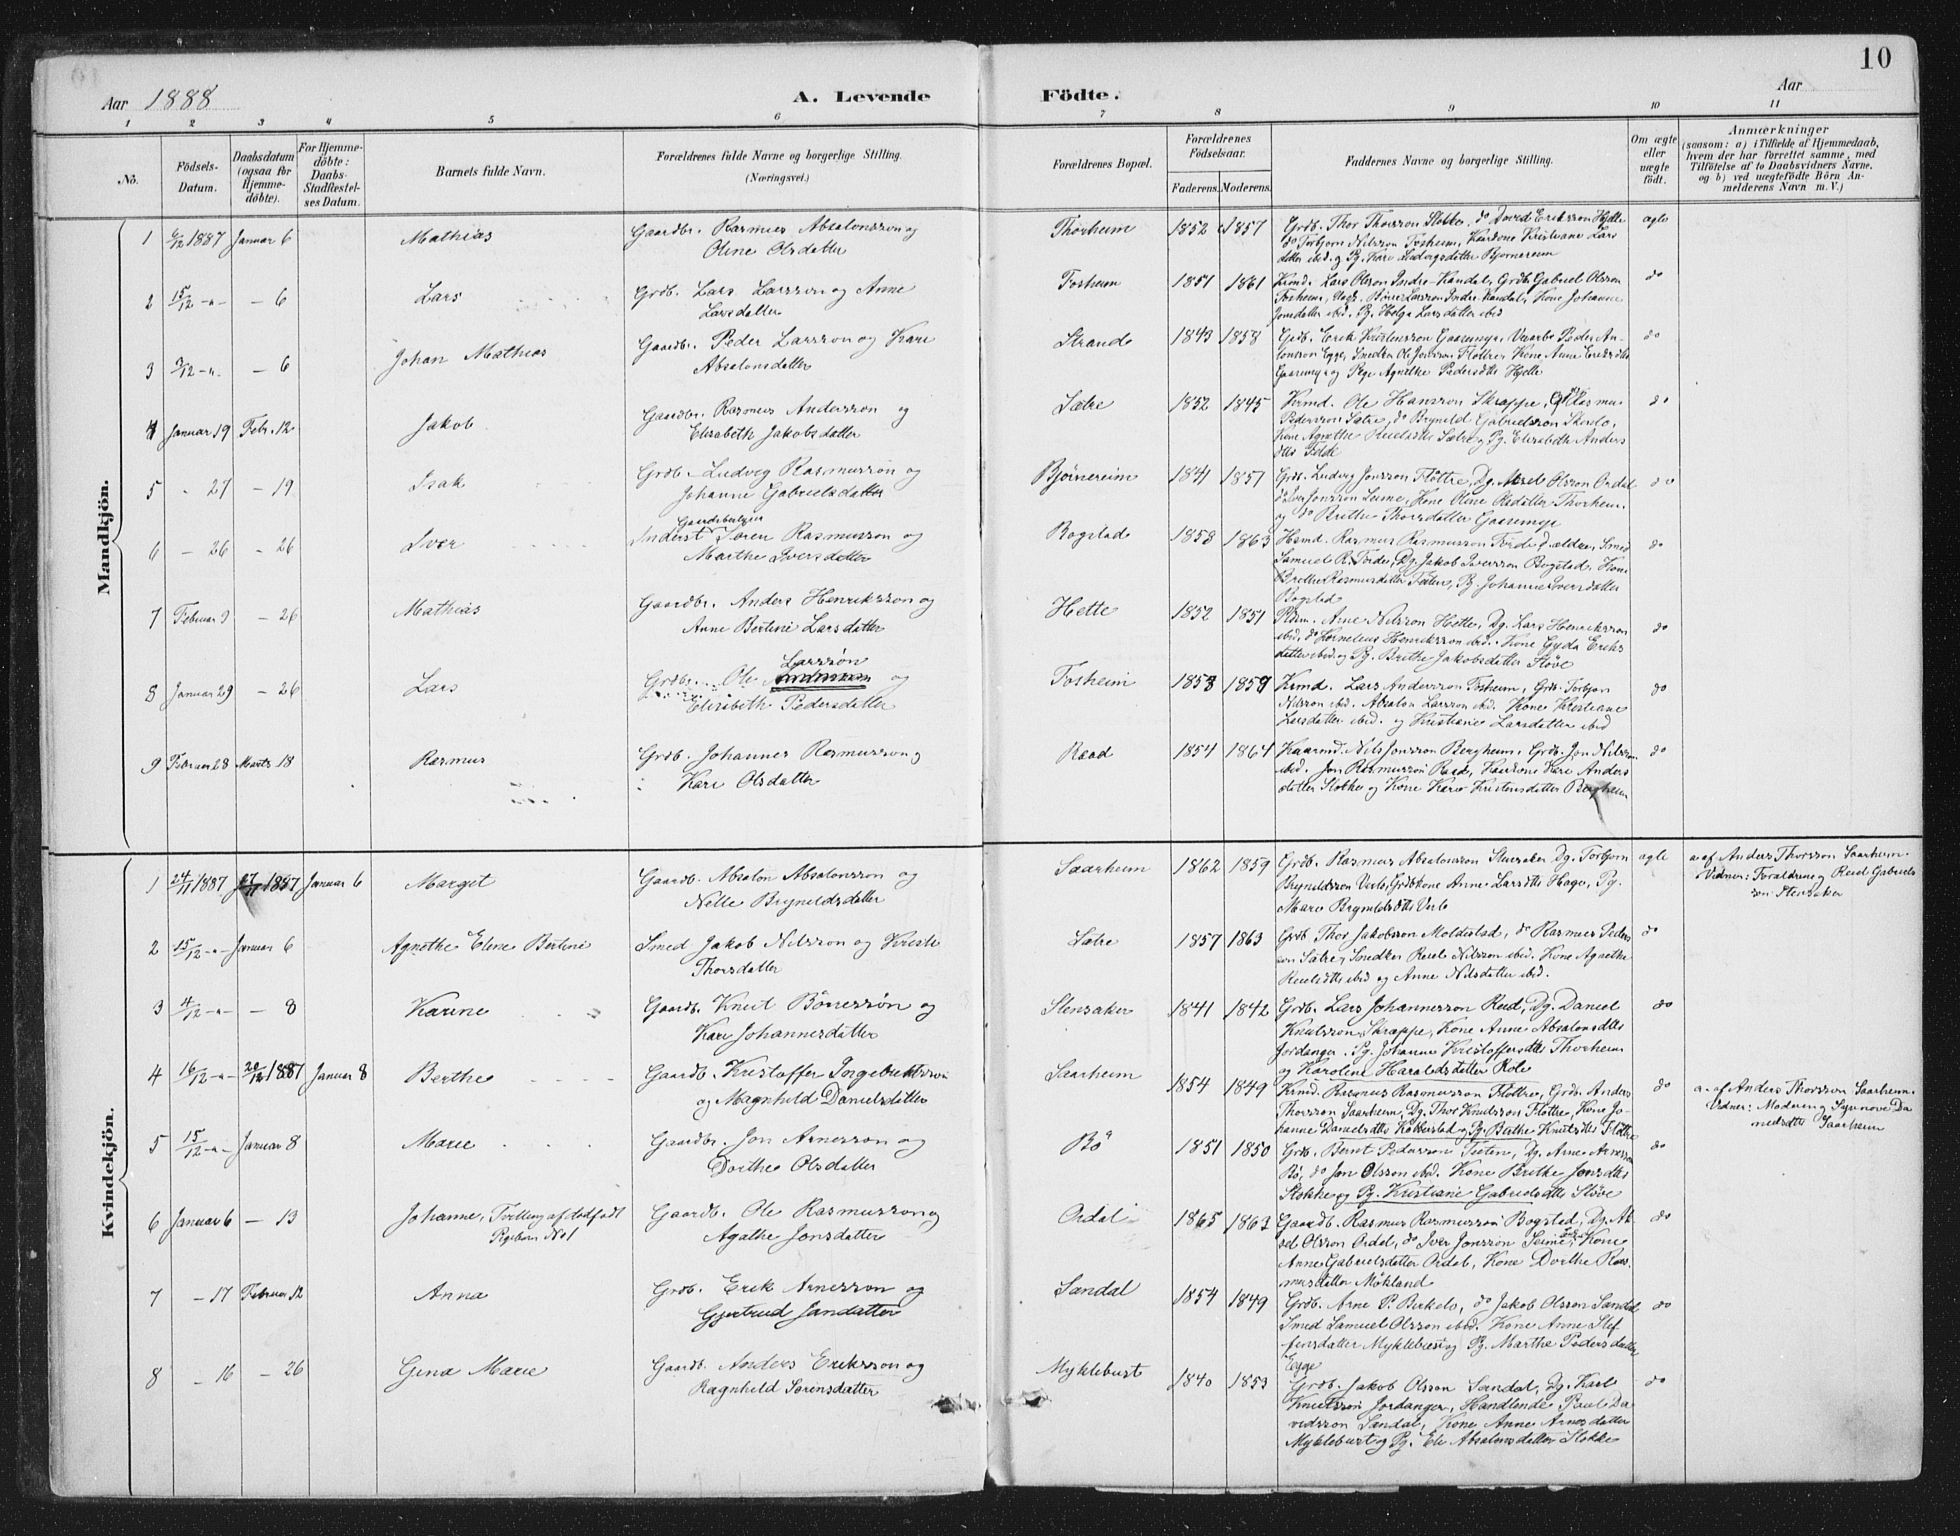 10
Aar 1888
A. Levende
Födte.
Aar
1 2 3 4 5 6 7 8 9 10 11
No.
Födsels-
Datum.
Daabsdatum
(ogsaa for
Hjemme-
döbte).
For Hjemme-
döbte:
Daabs-
Stadfæstel-
ses Datum.
Barnets fulde Navn.
Forældrenes fulde Navne og borgerlige Stilling.
(Næringsvei.)
Forældrenes Bopæl.
Forældrenes
Födselsaar.
Faderens. Moderens.
Faddernes Navne og borgerlige Stilling.
Om ægte
eller
uægte
födt.
Anmærkninger
(saasom: a) i Tilfælde af Hjemmedaab,
hvem der har forrettet samme, med
Tilföielse af to Daabsvidners Navne,
og b) ved uægtefödte Börn An-
melderens Navn m. V.)
Mandkjön.
1 6/12 1887 Januar 6 Mathias Gaardbr. Rasmus Absalonsson og
Oline Olsdatter
Thorheim 1852 1857 Grdb. Thor Thorsson Stokke. do David Eriksson Hjelle
do Torbjørn Nilsson Fosheim, Kaarkone Kristiane Lars
datter ibid. og Pg. Kari Ludvigsdatter Bjørnereim
ægte
2 15/12 -"- - 6 Lars Grdb. Lars Larsson og Anne
Larsdatter
Fosheim 1851 1861 Kmd. Lars Olsson Indre-Handal, Grdb. Gabriel Olsson
Fosheim, Børre Larsson Indre-Handal, Kone Johanne
Jonsdatter ibid. Pg. Helga Larsdatter ibid
do
3 9/12 -"- - 6 Johan Mathias Gaardbr. Peder Larsson og Kari
Absalonsdatter
Strand 1843 1858 Grdb. Erik Kristensson Gaasemyr, Peder An-
tonsson Egge, Smedkar Ole Jonsson Fløttre, Kone Anne Eriksdtr
Gaasemyr og Pige Agnethe Pedersdtr Hjelle
do
4 Januar 19 Febr. 12 Jakob Gaardbr. Rasmus Andersson og
Elisabeth Jakobsdatter
Sætre 1852 1845 Kmd. Ole Hansson Skrappe, Rasmus
Pedersson Sætre, do Brynild Gabrielsson
Kone Agnethe Reielsdtr Sætre og Pg. Elisabeth Anders
dtr Felde
do
5 - 27 - 19 Isak Grdb. Ludvig Rasmusson og
Johanne Gabrielsdatter
Bjørnereim 1841 1857 Grdb. Ludvig Jonsson Fløttre, Dg. Aksel Olsson Ordal
do Iver Jonsson Seime, Kone Oline Olsdatter Thorheim
og do Brithe Thorsdatter Gaasemyr
do
6 - 26 - 26 Iver Gaardbestyrer
Inderst Søren Rasmusson og
Marthe Iversdatter
Bogstad 1858 1863 Hsmd. Rasmus Rasmusson Førde d. ældre, Smed
Samuel R. Førde, Dg. Jakob Iversson Bogstad, Kone
Brithe Rasmusdatter Teiten, Pg. Johanne Iversdatter
Bogstad
do
7 Februar 9 - 26 Mathias Gaardbr. Anders Henriksson og
Anne Bertine Larsdatter
Hette 1852 1851 Arne Nilsson Hette, Dg. Lars Henriksson
ibid, do Kornelius Henriksson ibid. Kone Gyda Eriks
datter ibid. og Pg. Brithe Jakobsdatter Støve
do
8 Januar 29 - 26 Lars Larsson
Grdbr. Ole og
Elisabeth Pedersdatter
Fosheim 1858 1859 Kmd. Lars Andersson Fosheim, Grdb. Torbjørn
Nilsson ibid. Absalon Larsson ibid. Kone Kristiane
Larsdatter ibid. og Kristiane Larsdatter ibid
do
9 Februar 28 Marts 18 Rasmus Grdb. Johannes Rasmusson og
Kari Olsdatter
Reed 1854 1864 Kaarmd. Nils Jonsson Bergheim, Grdb. Jon Nilsson
ibid. Jon Rasmusson Reed, Kaarkone Kari Anders
datter Stokke og Kone Kari Kristensdatter Bergheim
do
Kvindekjön.
1 24/11 1887 27/11 1887 Januar 6 Margit Gaardb. Absalon Absalonsson og
Nille Bryneldsdatter
Saarheim 1862 1859 Grdb. Rasmus Absalonsson Stensaker Dg. Torbjørn
Bryneldsson Verlo, Grdbkone Anne Larsdtr Hage, Pg.
Mari Bryneldsdtr Verlo
ægte a. af Anders Thorsson Saarheim.
Vidner: Forældrene og Reid Gabriels
son Stensaker
2 15/12 -"- Januar 6 Agnethe Eline Bertine Smed Jakob Nilsson og Kristi
Thorsdatter
Sætre 1857 1863 Grdb. Thor Jakobsson Moldestad, do Rasmus Peders
son Sætre, Smedkar Reiel Nilsson ibid. Kone Agnethe
Reielsdtr ibid og Anne Nilsdatter ibid.
do
3 4/12 -"- - 8 Karine Gaardb. Knut Børresson og
Kari Johannesdatter
Stensaker 1841 1842 Grdb. Lars Johannesson Reed, Dg. Daniel
Knutsson Skrappe, Kone Anne Absalonsdtr
Jordanger, Pg. Johanne Kristoffersdtr Thorheim
og Karoline Haraldsdatter Role
do
4 16/12 -"- 20/12 1887 Januar 8 Berthe Gaardb. Kristoffer Ingebriktsson
og Magnhild Danielsdatter
Saarheim 1854 1849 Kmd. Rasmus Rasmusson Fløttre, Grdb. Anders
Thorsson Saarheim, Dg. Thor Knudsson Fløttre, Kone Jo-
hanne Danielsdtr Kobberstad og Pg. Berthe Knutsdtr Fløttre
do a. af Anders Thorsson Saarheim.
Vidner: Moderen og Synnøve Da
nielsdtr Saarheim
5 15/12 -"- Januar 8 Marie Gaardbr. Jon Arnesson og
Dorthe Olsdatter
Bø 1851 1850 Grdb. Bernt Pedersson Teiten, Dg. Arne Arnesson
Bø, do Jon Olsson ibid. Kone Brithe Jonsdtr
Stokke og Pg. Kristiane Gabrielsdtr Støve
do
6 Januar 6 - 13 Johanne, Tvilling af dødfødt
Pigebarn No 1
Gaardb. Ole Rasmusson og
Agathe Jonsdatter
Ordal 1865 1863 Gaardb. Rasmus Rasmusson Bogstad, Dg. Ak-
sel Olsson Ordal, do Iver Jonsson Seime, Kone
Anne Gabrielsdatter Ordal, Kone Dorthe Ras-
musdatter Mökland
do
7 - 17 Februar 12 Anna Grdb. Erik Arnesson og
Gjertrud Jansdatter
Sandal 1854 1849 Grdb. Arne P. Birkelo, do Jakob Olsson Sandal
Smed Samuel Olsson ibid. Kone Anne Stef
fensdatter Myklebust og Pg. Marthe Pedersdatter
Egge
do
8 - 16 - 26 Gina Marie Gaardb. Anders Eriksson og
Ragnhild Sørensdatter
Myklebust 1840 1853 Grdb. Jakob Olsson Sandal, Dg. Karl
Knutsson Jordanger, Handlende Paul Da
vidsson Sandal, Kone Anne Arnesdatter
Myklebust og Pg. Eli Absalonsdatter Stokke
do